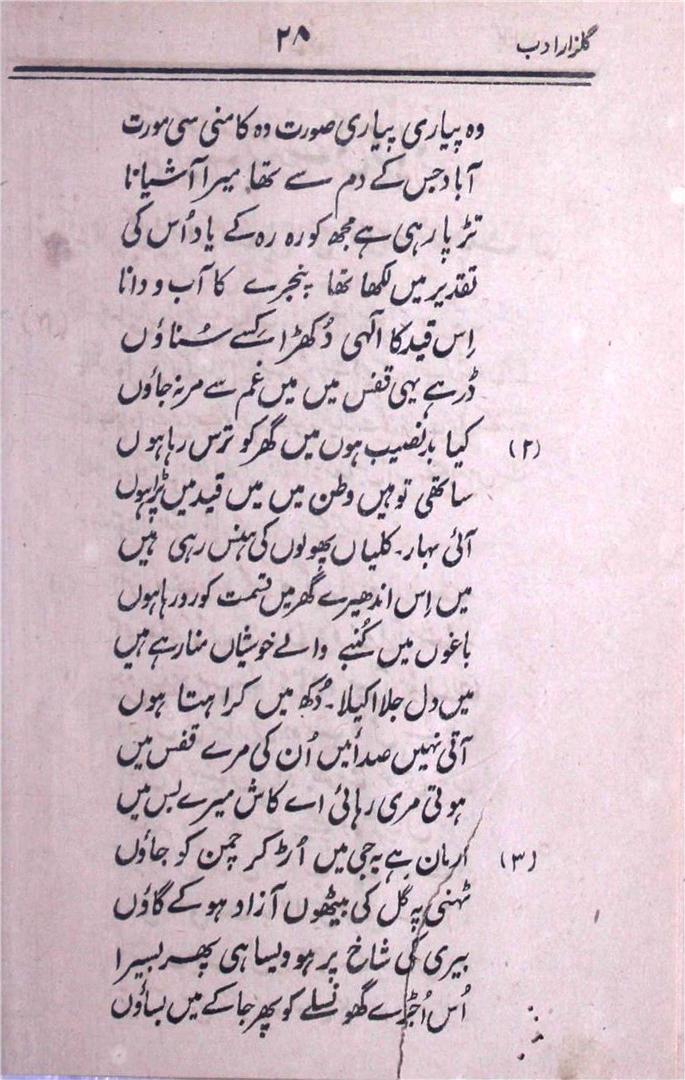 گلزار ادب
۲۸
وہ پیاری پیاری صورت وہ کامنی سی مورت
آباد جس کے دم سے تھا میرا آشیانا
تڑپا رہی ہے مجھ کو رہ رہ کے یاد اُس کی
تقدیر میں لکھا تھا پنجرے کا آب و دانا
اِس قید کا الٰہی دُکھڑا کسے سُناؤں
ڈر ہے یہی قفس میں میں غم سے مر نہ جاؤں
(۲) کیا بدنصیب ہوں میں گھر کو ترس رہا ہوں
ساتھی تو ہیں وطن میں میں قید میں پڑا ہوں
آئی بہار۔ کلیاں پھولوں کی ہنس رہی ہیں
میں اِس اندھیرے گھر میں قسمت کو رو رہا ہوں
باغوں میں کُنبے والے خوشیاں منا رہے ہیں
میں دل جلا اکیلا۔ دُکھ میں کراہتا ہوں
آتی نہیں صدائیں اُن کی مرے قفس میں
ہوتی مری رہائی اے کاش میرے بس میں
(۳) ارمان ہے یہ جی میں اُڑ کر چمن کو جاؤں
ٹہنی پہ گل کی بیٹھوں آزاد ہو کے گاؤں
بیری کی شاخ پر ہو ویسا ہی پھر بسیرا
اُس اُجڑے گھونسلے کو پھر جا کے میں بساؤں